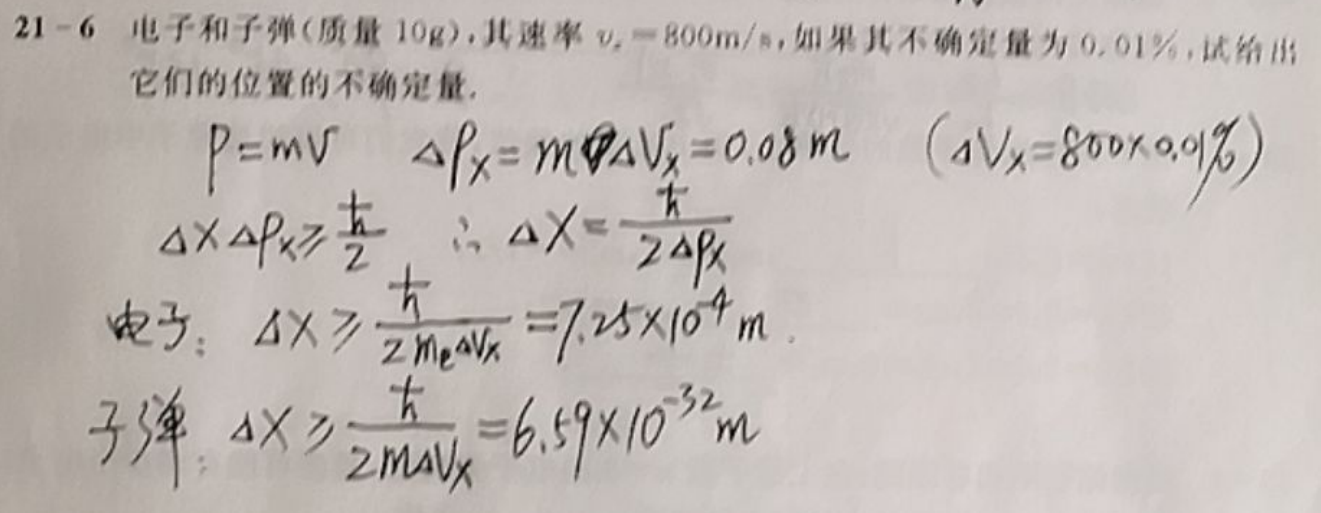 21-6 电子和子弹(质量 10g),其速率 vₓ=800m/s,如果其不确定量为 0.01%,试给出
它们的位置的不确定量.
P=mV ΔPₓ=mΔVₓ=0.08m (ΔVₓ=800×0.01%)
ΔXΔPₓ≥ħ/2 ∴ ΔX=ħ/2ΔPₓ
电子: ΔX≥ħ/2mₑΔVₓ=7.25×10⁻⁴m.
子弹: ΔX≥ħ/2mΔVₓ=6.59×10⁻³²m